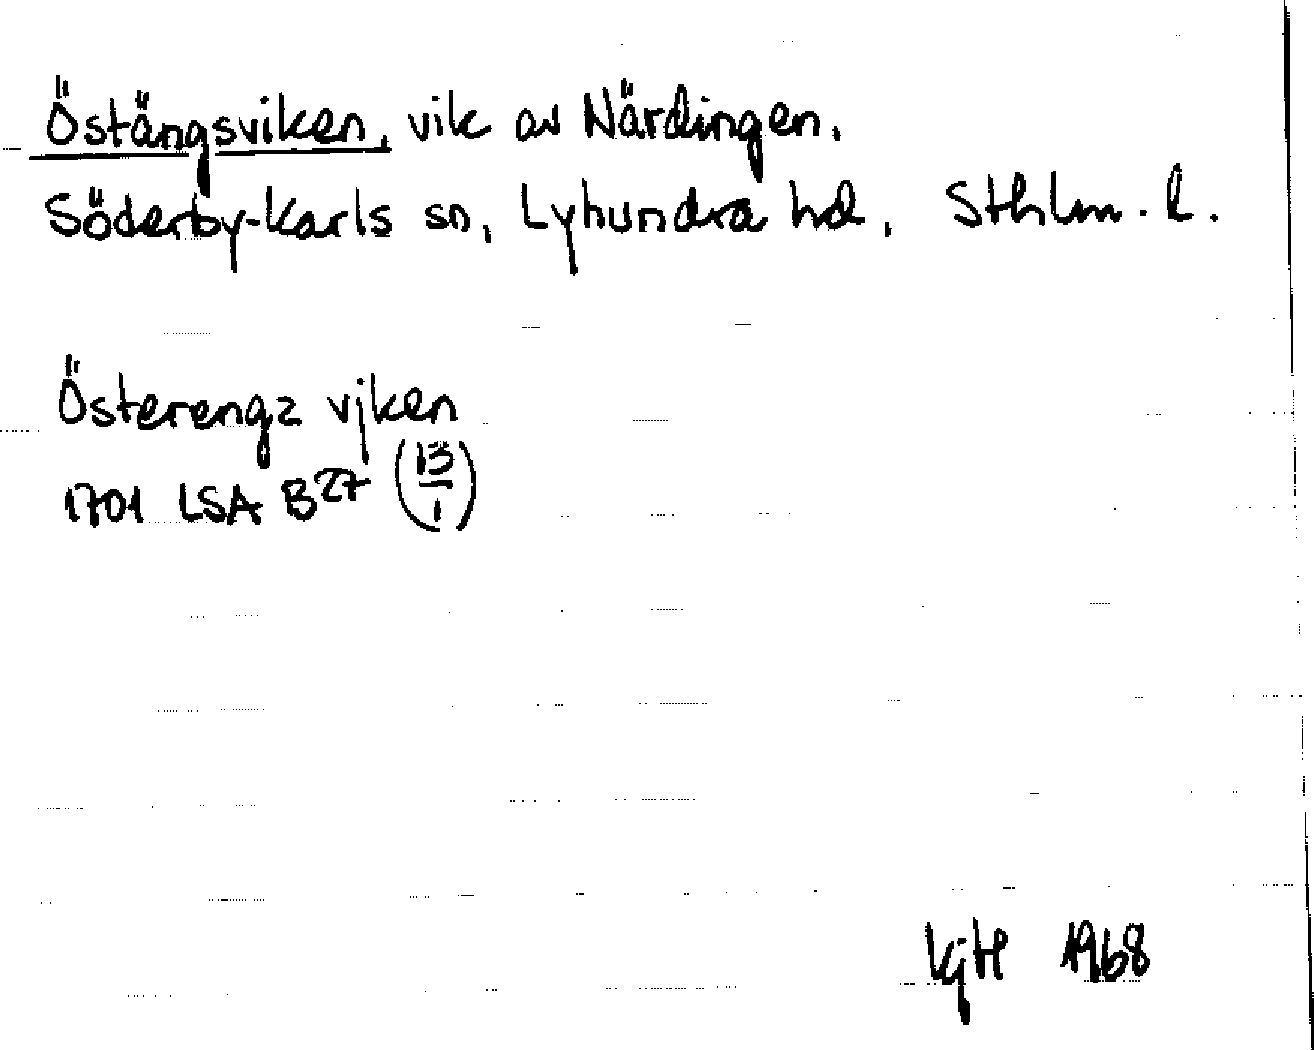 Östängsviken, vik av Närdingen.
Söderby-Karls sn, Lyhundra hd, Sthlm. l.
Österengz vjken
1701 LSA B27 (13/1)
1968